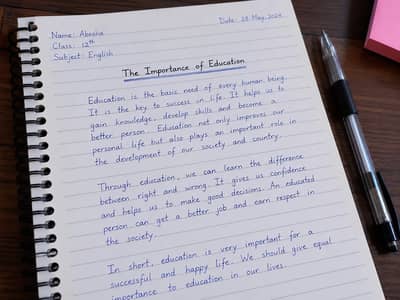 Name: Abeeha
Date: 28 May, 2024
Class: 12th
Subject: English
The Importance of Education
Education is the basic need of every human being.
It is the key to success in life. It helps us to
gain knowledge, develop skills and become a
better person. Education not only improves our
personal life but also plays an important role in
the development of our society and country.
Through education, we can learn the difference
between right and wrong. It gives us confidence
and helps us to make good decisions. An educated
person can get a better job and earn respect in
the society.
In short, education is very important for a
successful and happy life. We should give equal
importance to education in our lives.